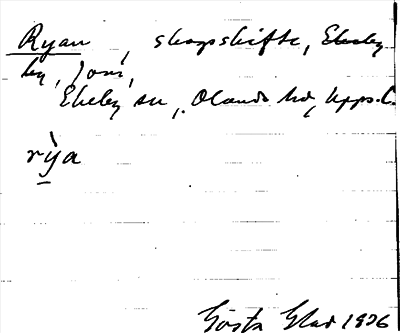 Ryan, skogsskifte, Ekeby
by, Joni,
Ekeby sn, Olands hd, Upps. l.
rỳa
Gösta Glad 1926